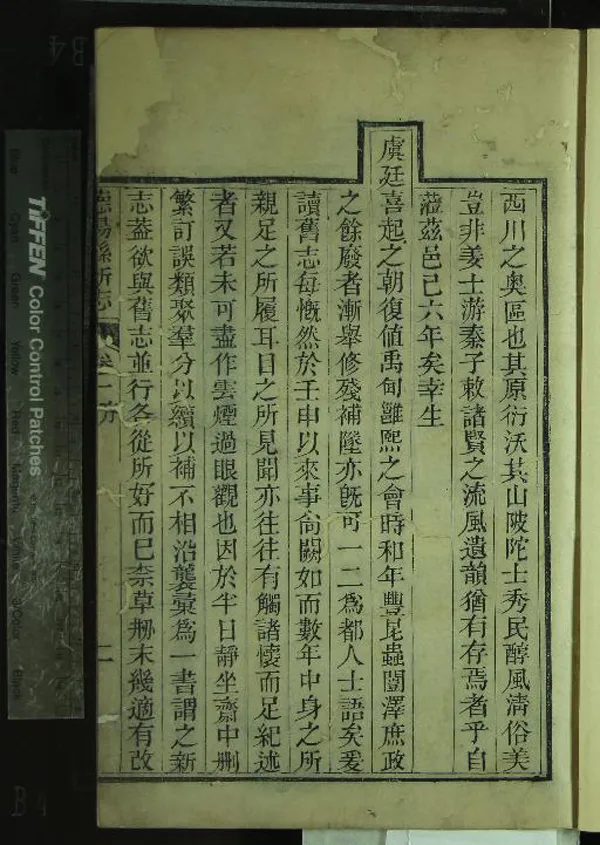 西川之奧區也其原衍沃其山陂陀士秀民醇風清俗美
豈非姜士游秦子敕諸賢之流風遺韻猶有存焉者乎自
蒞茲邑已六年矣幸生
虞廷喜起之朝復値禹甸雝熙之會時和年豐昆蟲闓澤庶政
之餘廢者漸舉修殘補墜亦旣可一二爲都人士語矣爰
讀舊志每慨然於壬申以來事尙闕如而數年中身之所
親足之所履耳目之所見聞亦往往有觸諸懷而足紀述
者又若未可盡作雲煙過眼觀也因於半日靜坐齋中刪
繁訂誤類聚羣分以續以補不相沿襲彙爲一書謂之新
志葢欲與舊志並行各從所好而已柰草刱未幾適有改
德陽縣新志
序
二
TIFFEN Color Control Patches
B4
B4